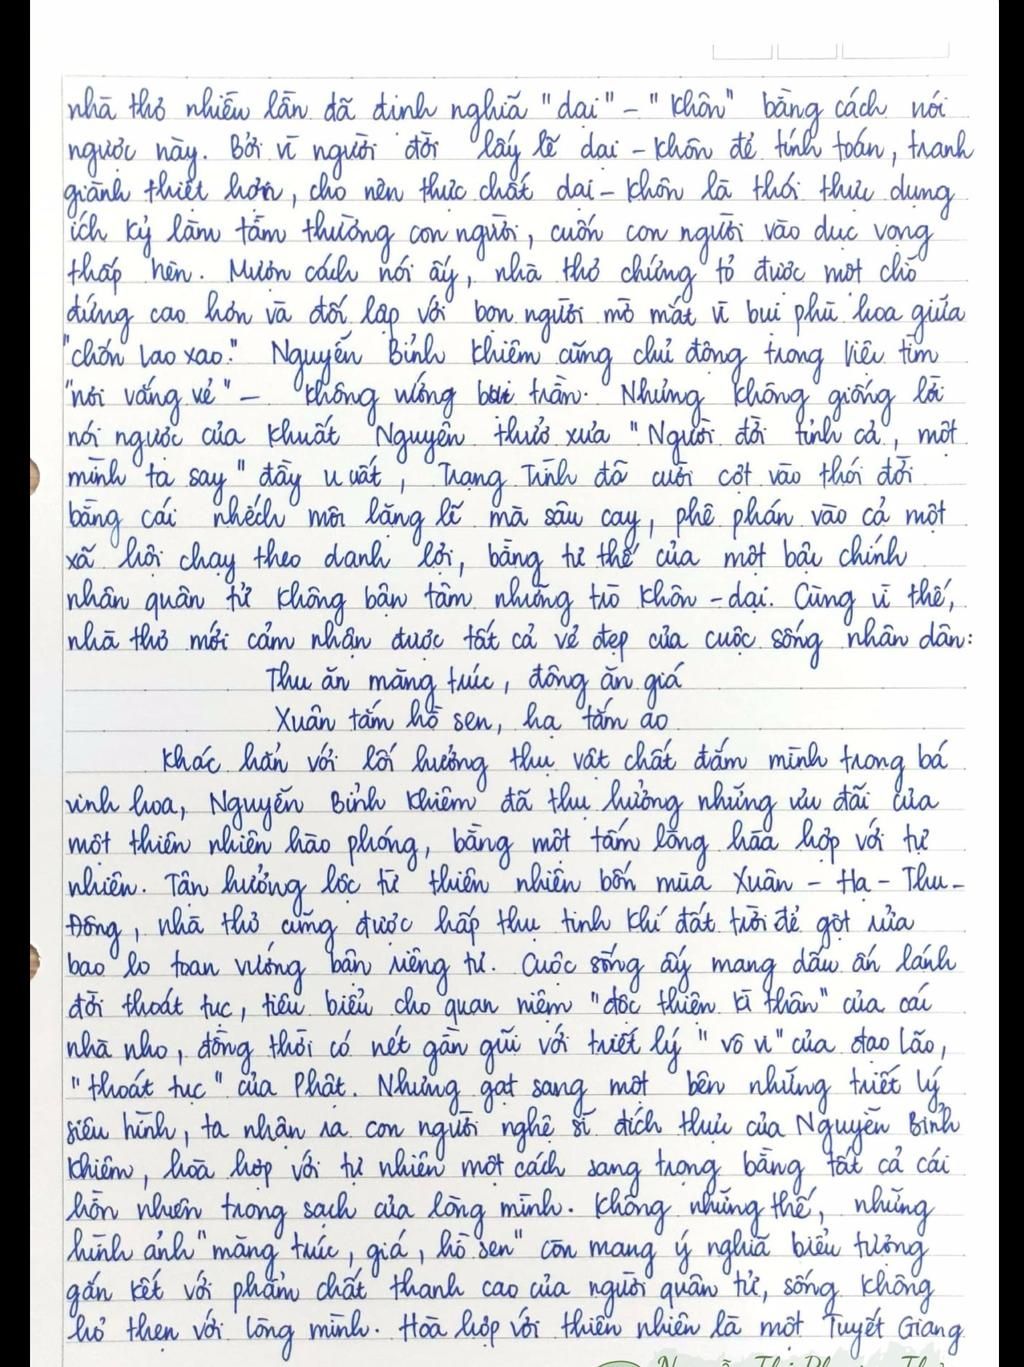 nhà thơ nhiều lần đã định nghĩa "dại" - "khôn" bằng cách nói
ngược này. Bởi vì người đời lấy lẽ dại - khôn để tính toán, tranh
giành thiệt hơn, cho nên thực chất dại - khôn là thói thực dụng
ích kỷ làm tầm thường con người, cuốn con người vào dục vọng
thấp hèn. Mượn cách nói ấy, nhà thơ chứng tỏ được một chỗ
đứng cao hơn và đối lập với bọn người mờ mắt vì bụi phù hoa giữa
"chốn lao xao." Nguyễn Bỉnh Khiêm cũng chủ động trong việc tìm
"nơi vắng vẻ" - không vướng bụi trần. Nhưng không giống lời
nói ngược của Khuất Nguyên thuở xưa "Người đời tỉnh cả, một
mình ta say" đầy u uất, Trạng Trình đã cười cợt vào thói đời
bằng cái nhếch môi lặng lẽ mà sâu cay, phê phán vào cả một
xã hội chạy theo danh lợi, bằng tư thế của một bậc chính
nhân quân tử không bận tâm những trò khôn - dại. Cũng vì thế,
nhà thơ mới cảm nhận được tất cả vẻ đẹp của cuộc sống nhân dân:
Thu ăn măng trúc, đông ăn giá
Xuân tắm hồ sen, hạ tắm ao
Khác hẳn với lối hưởng thụ vật chất đắm mình trong bả
vinh hoa, Nguyễn Bỉnh Khiêm đã thụ hưởng những ưu đãi của
một thiên nhiên hào phóng, bằng một tấm lòng hòa hợp với tự
nhiên. Tận hưởng lộc từ thiên nhiên bốn mùa Xuân - Hạ - Thu -
Đông, nhà thơ cũng được hấp thụ tinh khí đất trời để gột rửa
bao lo toan vướng bận riêng tư. Cuộc sống ấy mang dấu ấn lánh
đời thoát tục, tiêu biểu cho quan niệm "độc thiện kì thân" của các
nhà nho, đồng thời có nét gần gũi với triết lý "vô vi" của đạo Lão,
"thoát tục" của Phật. Nhưng gạt sang một bên những triết lý
siêu hình, ta nhận ra con người nghệ sĩ đích thực của Nguyễn Bỉnh
Khiêm, hòa hợp với tự nhiên một cách sang trọng bằng tất cả cái
hồn nhiên trong sạch của lòng mình. Không những thế, những
hình ảnh "măng trúc, giá, hồ sen" còn mang ý nghĩa biểu tượng
gắn kết với phẩm chất thanh cao của người quân tử, sống không
hổ thẹn với lòng mình. Hòa hợp với thiên nhiên là một Tuyết Giang